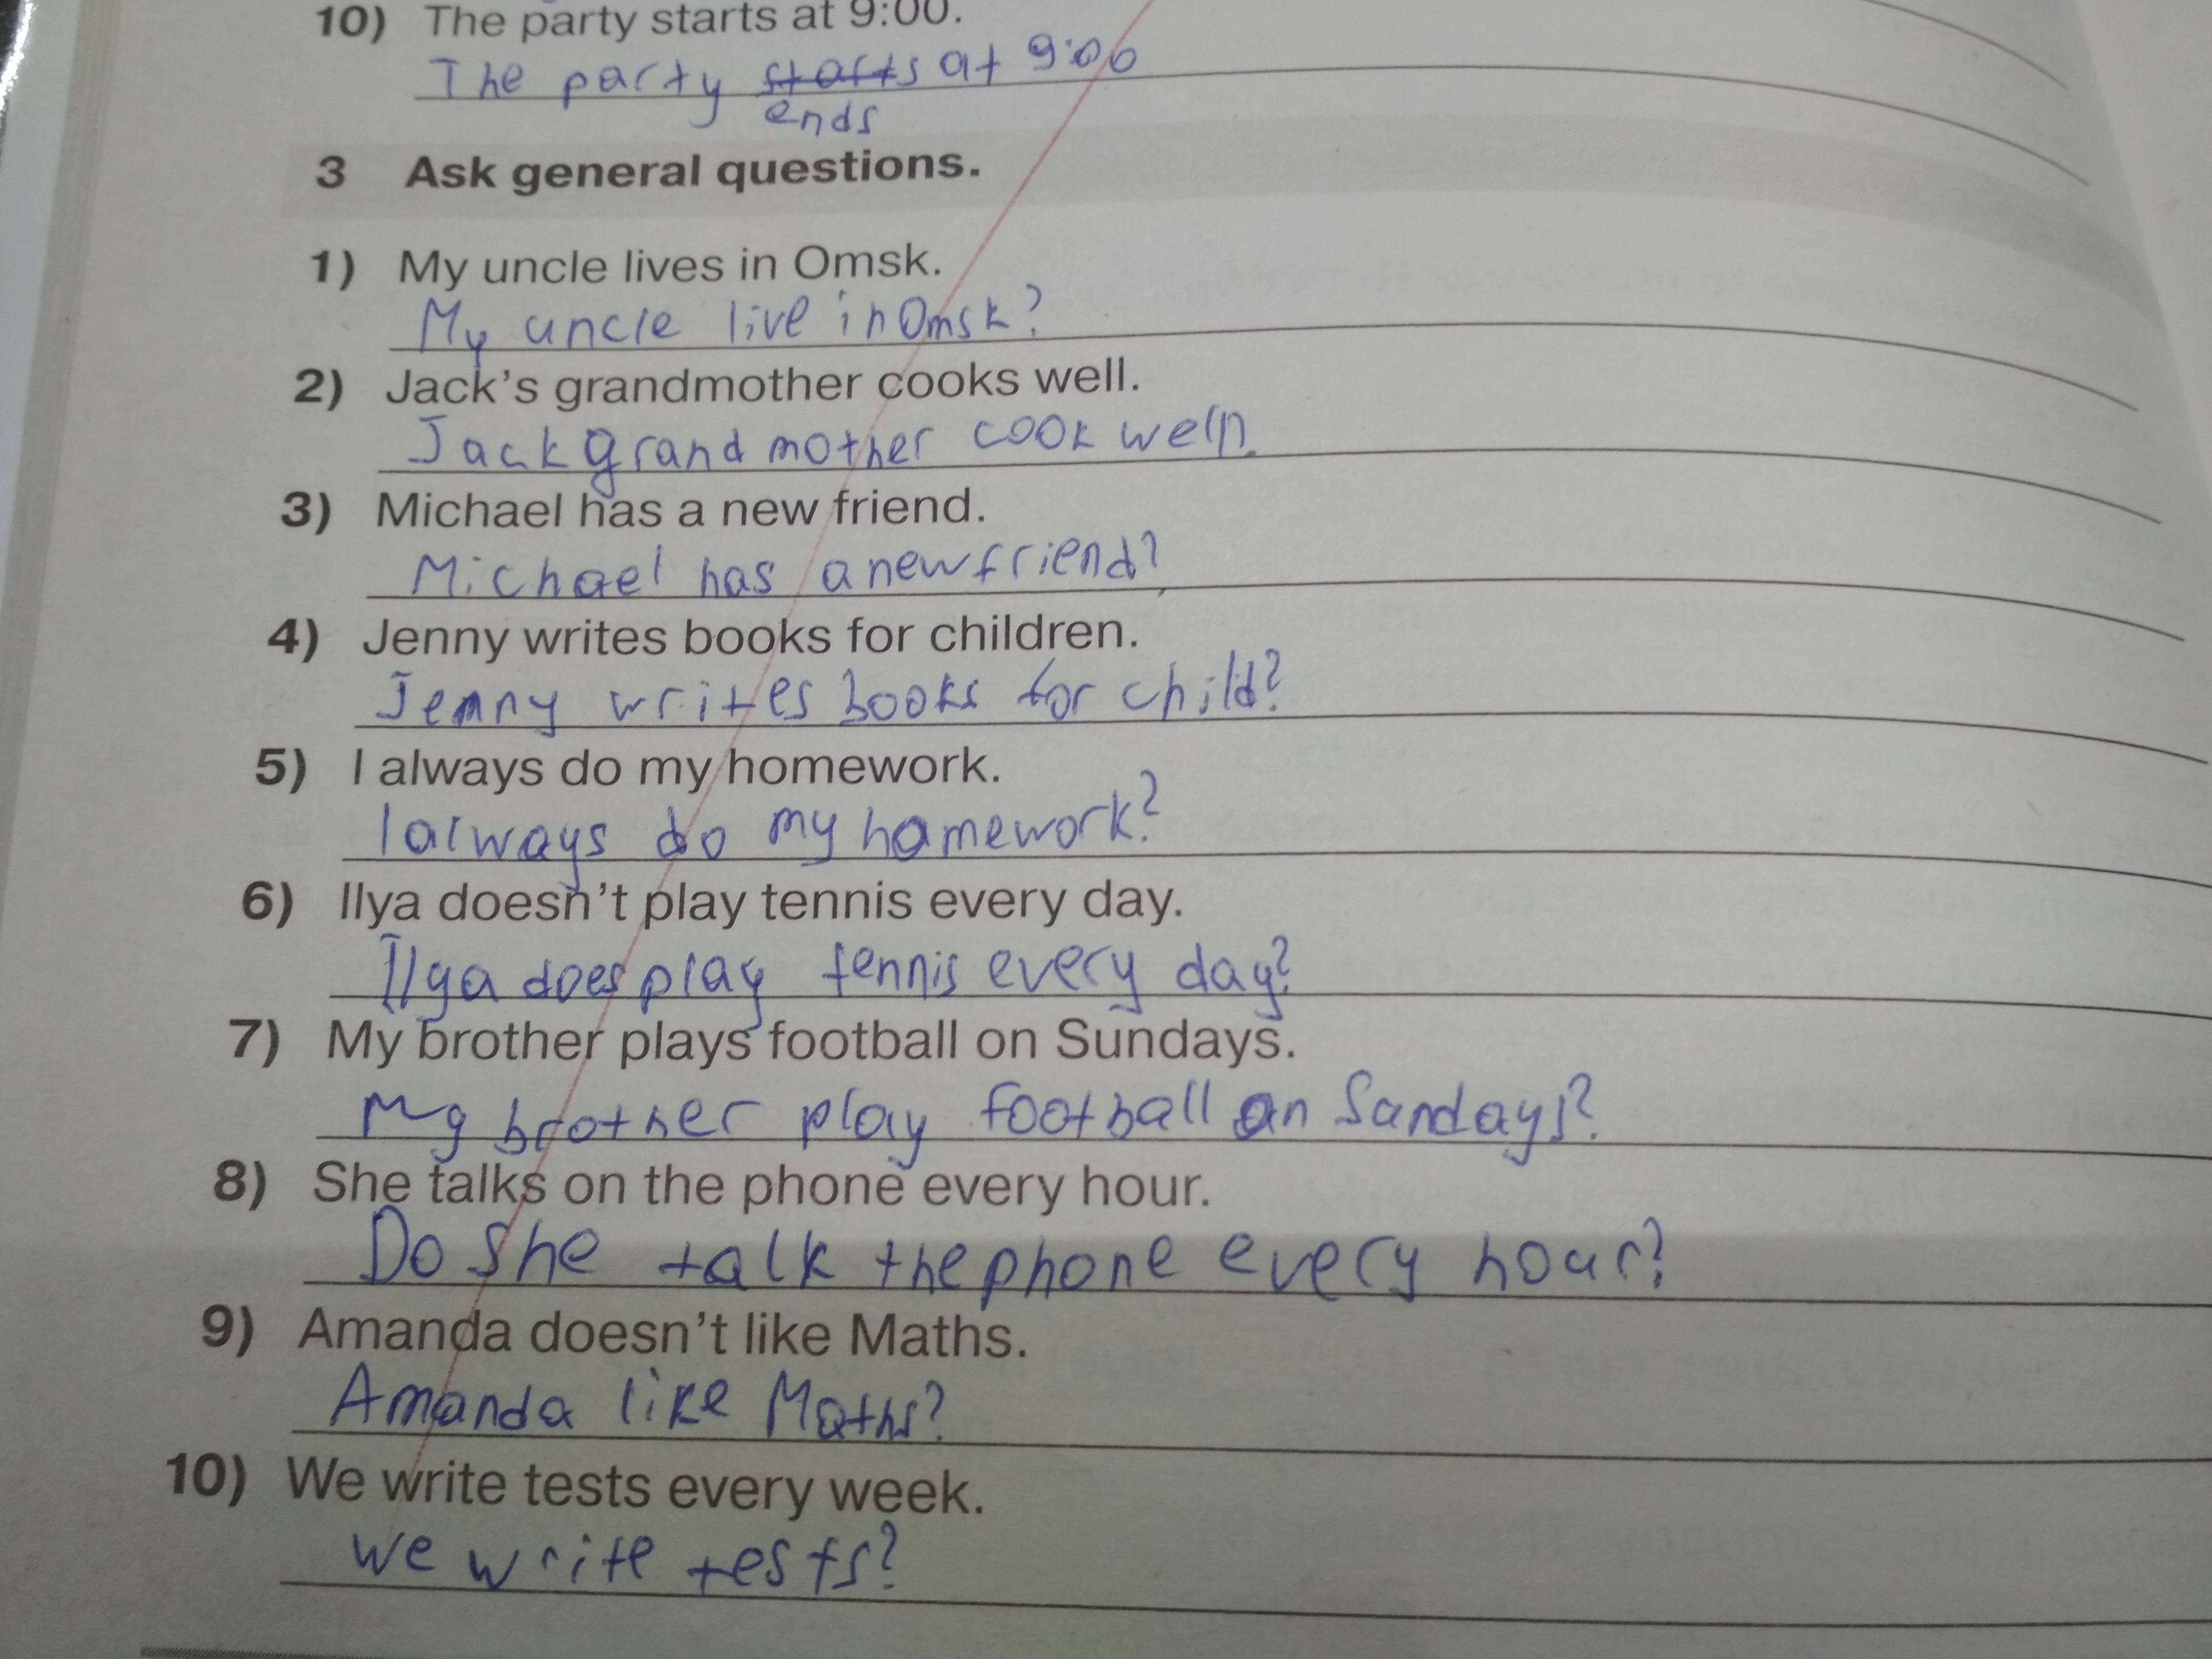 10) The party starts at 9:00.
The party starts at 9:00
ends
3 Ask general questions.
1) My uncle lives in Omsk.
My uncle live in Omsk?
2) Jack's grandmother cooks well.
Jack grandmother cook well?
3) Michael has a new friend.
Michael has a new friend?
4) Jenny writes books for children.
Jenny writes books for child?
5) I always do my homework.
I always do my homework?
6) Ilya doesn't play tennis every day.
Ilya does play tennis every day?
7) My brother plays football on Sundays.
My brother play football on Sandays?
8) She talks on the phone every hour.
Do she talk the phone every hour?
9) Amanda doesn't like Maths.
Amanda like Maths?
10) We write tests every week.
We write tests?